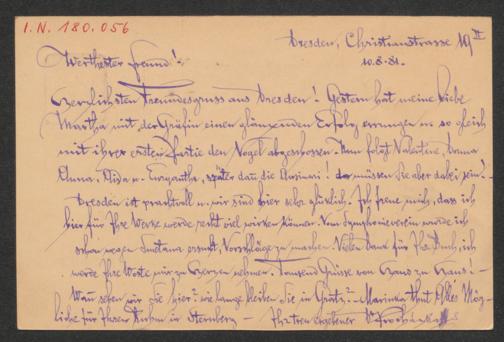 I.N. 180.056
Dresden, Christianstrasse 19 II
10.8.81.
Werthester Freund!
Herzlichsten Freundesgruss aus Dresden! Gestern hat meine liebe
Martha mit der Gräfin einen glänzenden Erfolg errungen u. so gleich
mit ihrer ersten Partie den Vogel abgeschossen. Nun folgt Valentine, Donna
Anna, Elisa u. Euryanthe, später dan die Orsini! da müssen Sie aber dabei sein!
Dresden ist prachtvoll u. wir sind hier sehr glücklich. Ich freue mich, dass ich
hier für Ihre Werke werde recht viel wirken können. Vom Symphonieverein wurde ich
schon wegen Smetana ersucht, Vorschläge zu machen. Vielen Dank für Ihr Buch, ich
werde Ihre Worte mir zu Herzen nehmen. Tausend Grüsse von Haus zu Haus!
Wan sehen wir Sie hier? wie lange bleiben Sie in Gratz? – Marinka thut Alles Mög-
liche für Ihren Ruhm in Sternberg – Ihr treu ergebener